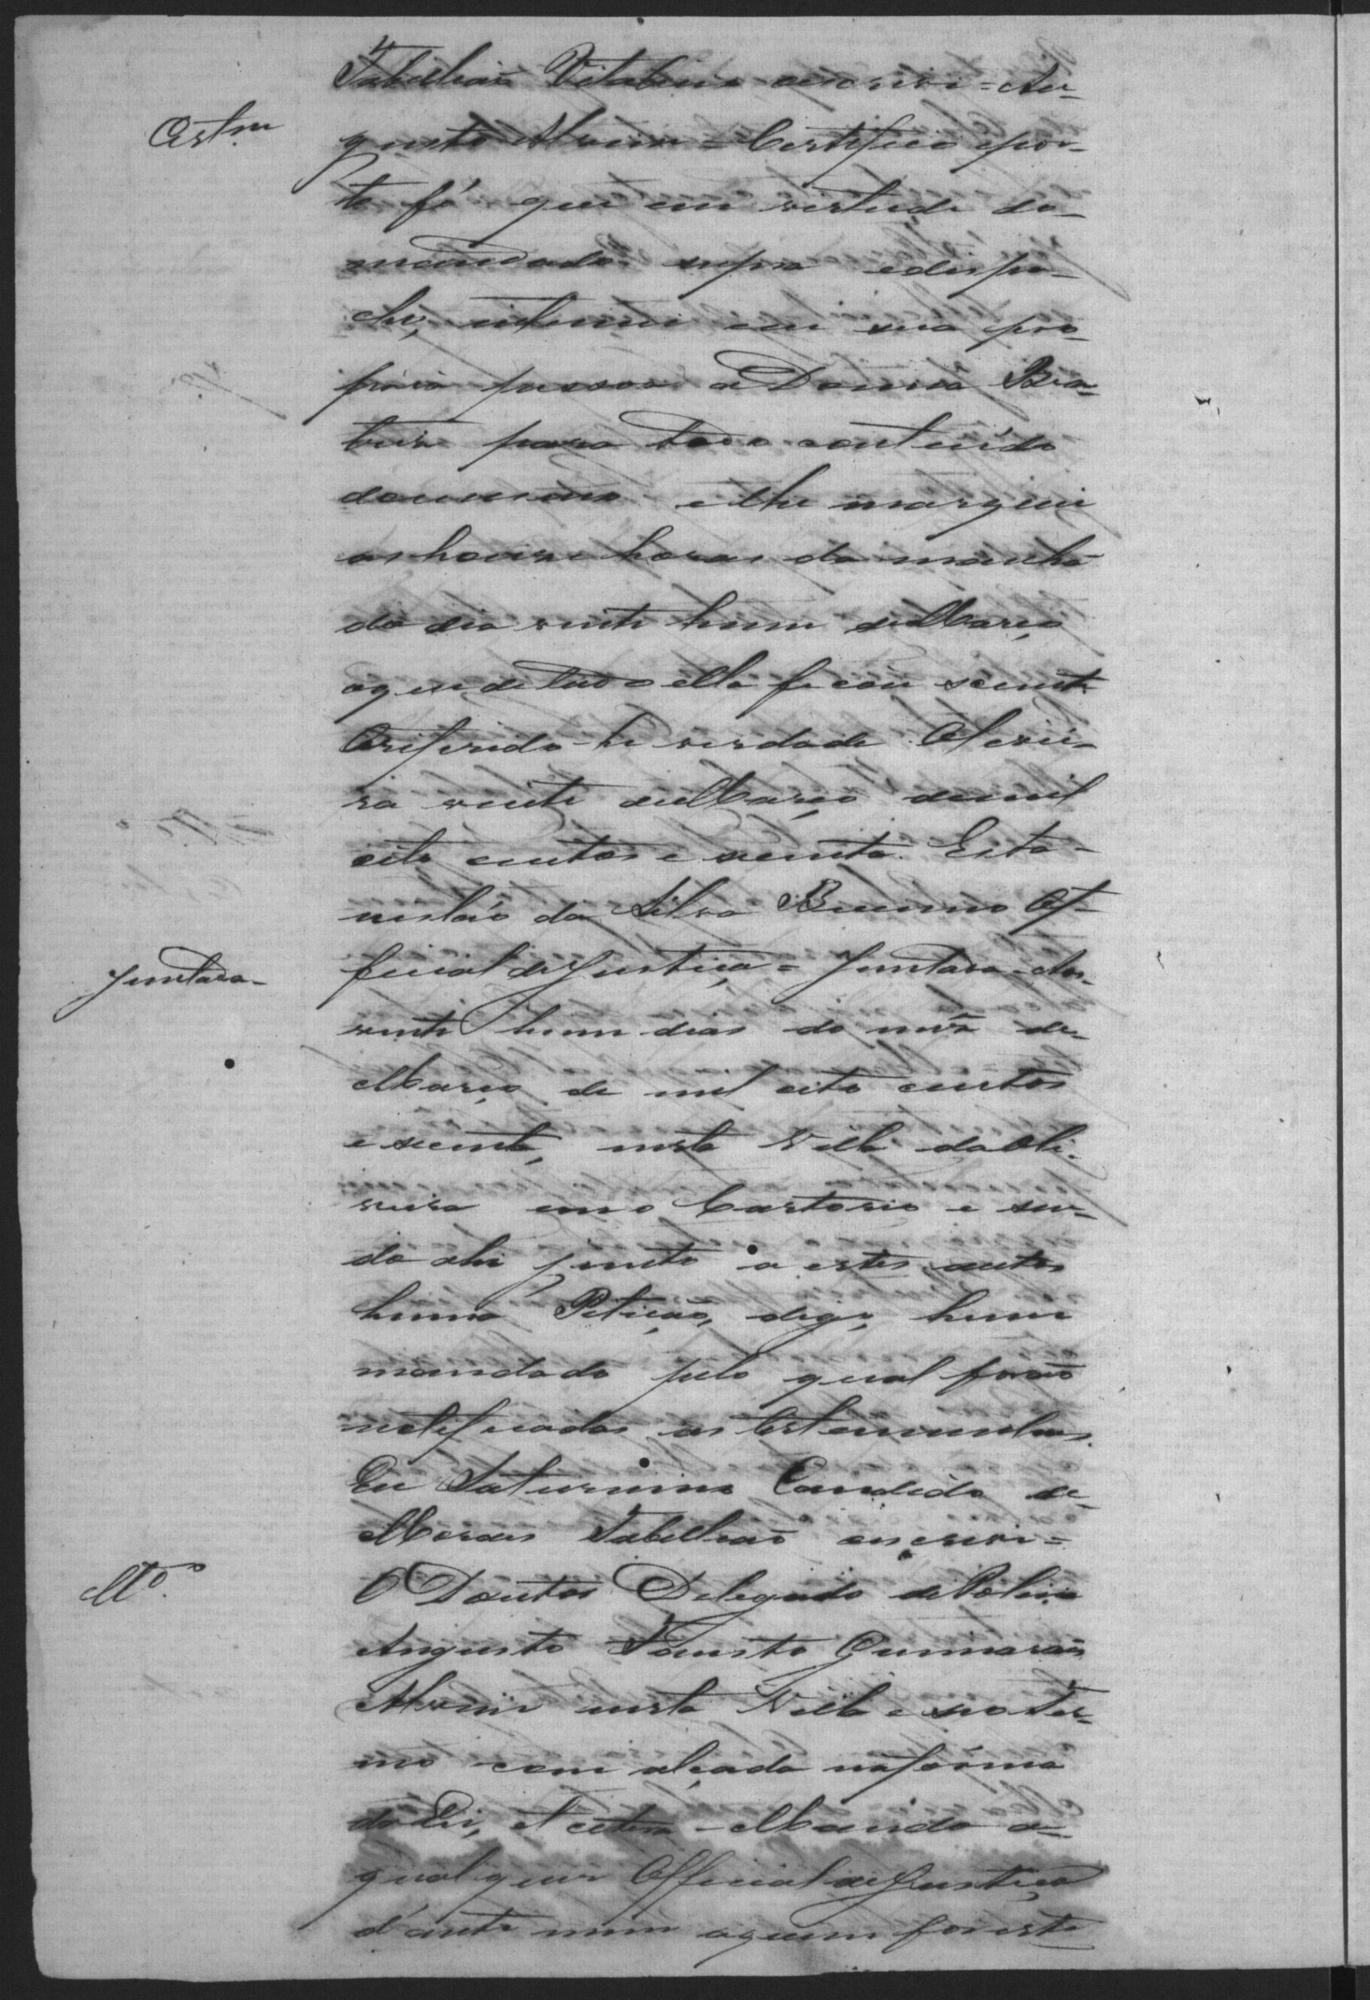 Tabellião Vitalino escrevi = Au-
Cert.m
gusto Alvim = Certifico e por-
to fé que em virtude do
mandado supra e despa-
cho, intimei em sua pro
pria pessoa a Donna Bea-
tris para todo conteúdo
do mesmo e lhe marquei
as nove horas da manhã
do dia vinte hum de Março
o que de tudo ella ficou sciente
O referido he verdade Olivei-
ra vinte de Março de mil
oito centos e setenta. Esta-
nislão da Silva Bueno Of-
Juntada-
ficial de Justiça = Juntada - Aos
vinte hum dias do mês de
Março de mil oito centos
e setenta, nesta Villa da Oli-
veira em o Cartorio e sen-
do ahi junto a estes autos
huma Petição, digo, hum
mandado pelo qual forão
notificadas as testemunhas.
Eu Saturnino Candido de
Moraes Tabellião escrevi =
M.do
O Doutor Delegado de Policia
Augusto Fausto Guimarães
Alvim nesta Villa e seo ter-
mo com alçada na forma
da Lei, et cetera - Mando a
qual quer Official de Justiça
d'ante mim a quem for este